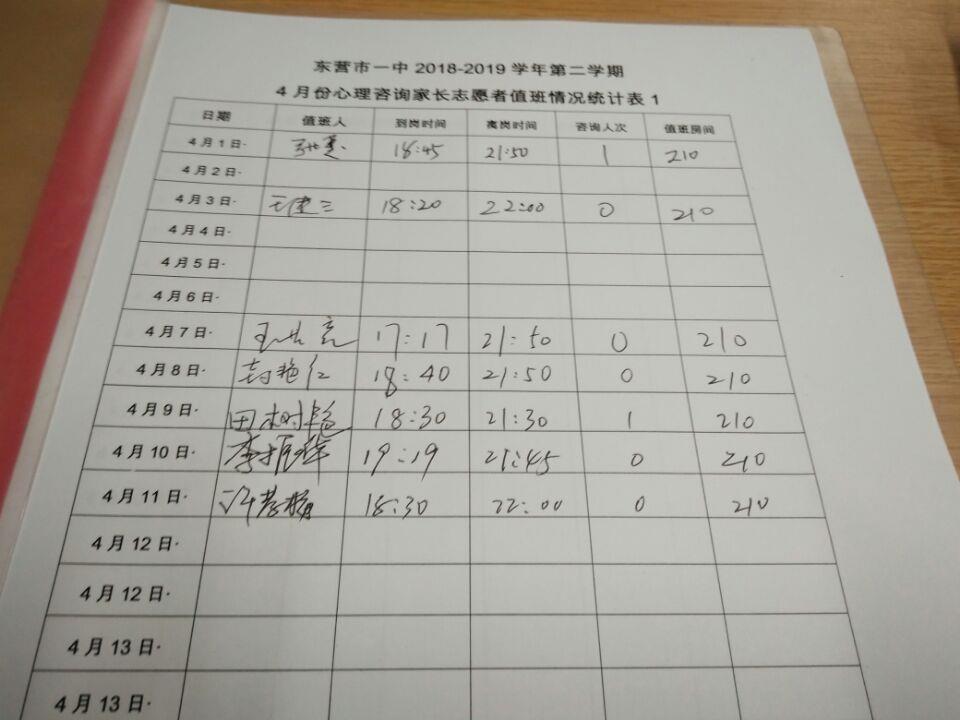 东营市一中 2018-2019 学年第二学期
4 月份心理咨询家长志愿者值班情况统计表 1
日期 值班人 到岗时间 离岗时间 咨询人次 值班房间
4 月 1 日 18:45 21:50 1 210
4 月 2 日
4 月 3 日 王建三 18:20 22:00 0 210
4 月 4 日
4 月 5 日
4 月 6 日
4 月 7 日 17:17 21:50 0 210
4 月 8 日 18:40 21:50 0 210
4 月 9 日 田树 18:30 21:30 1 210
4 月 10 日 李振 19:19 21:45 0 210
4 月 11 日 18:30 22:00 0 210
4 月 12 日
4 月 12 日
4 月 13 日
4 月 13 日